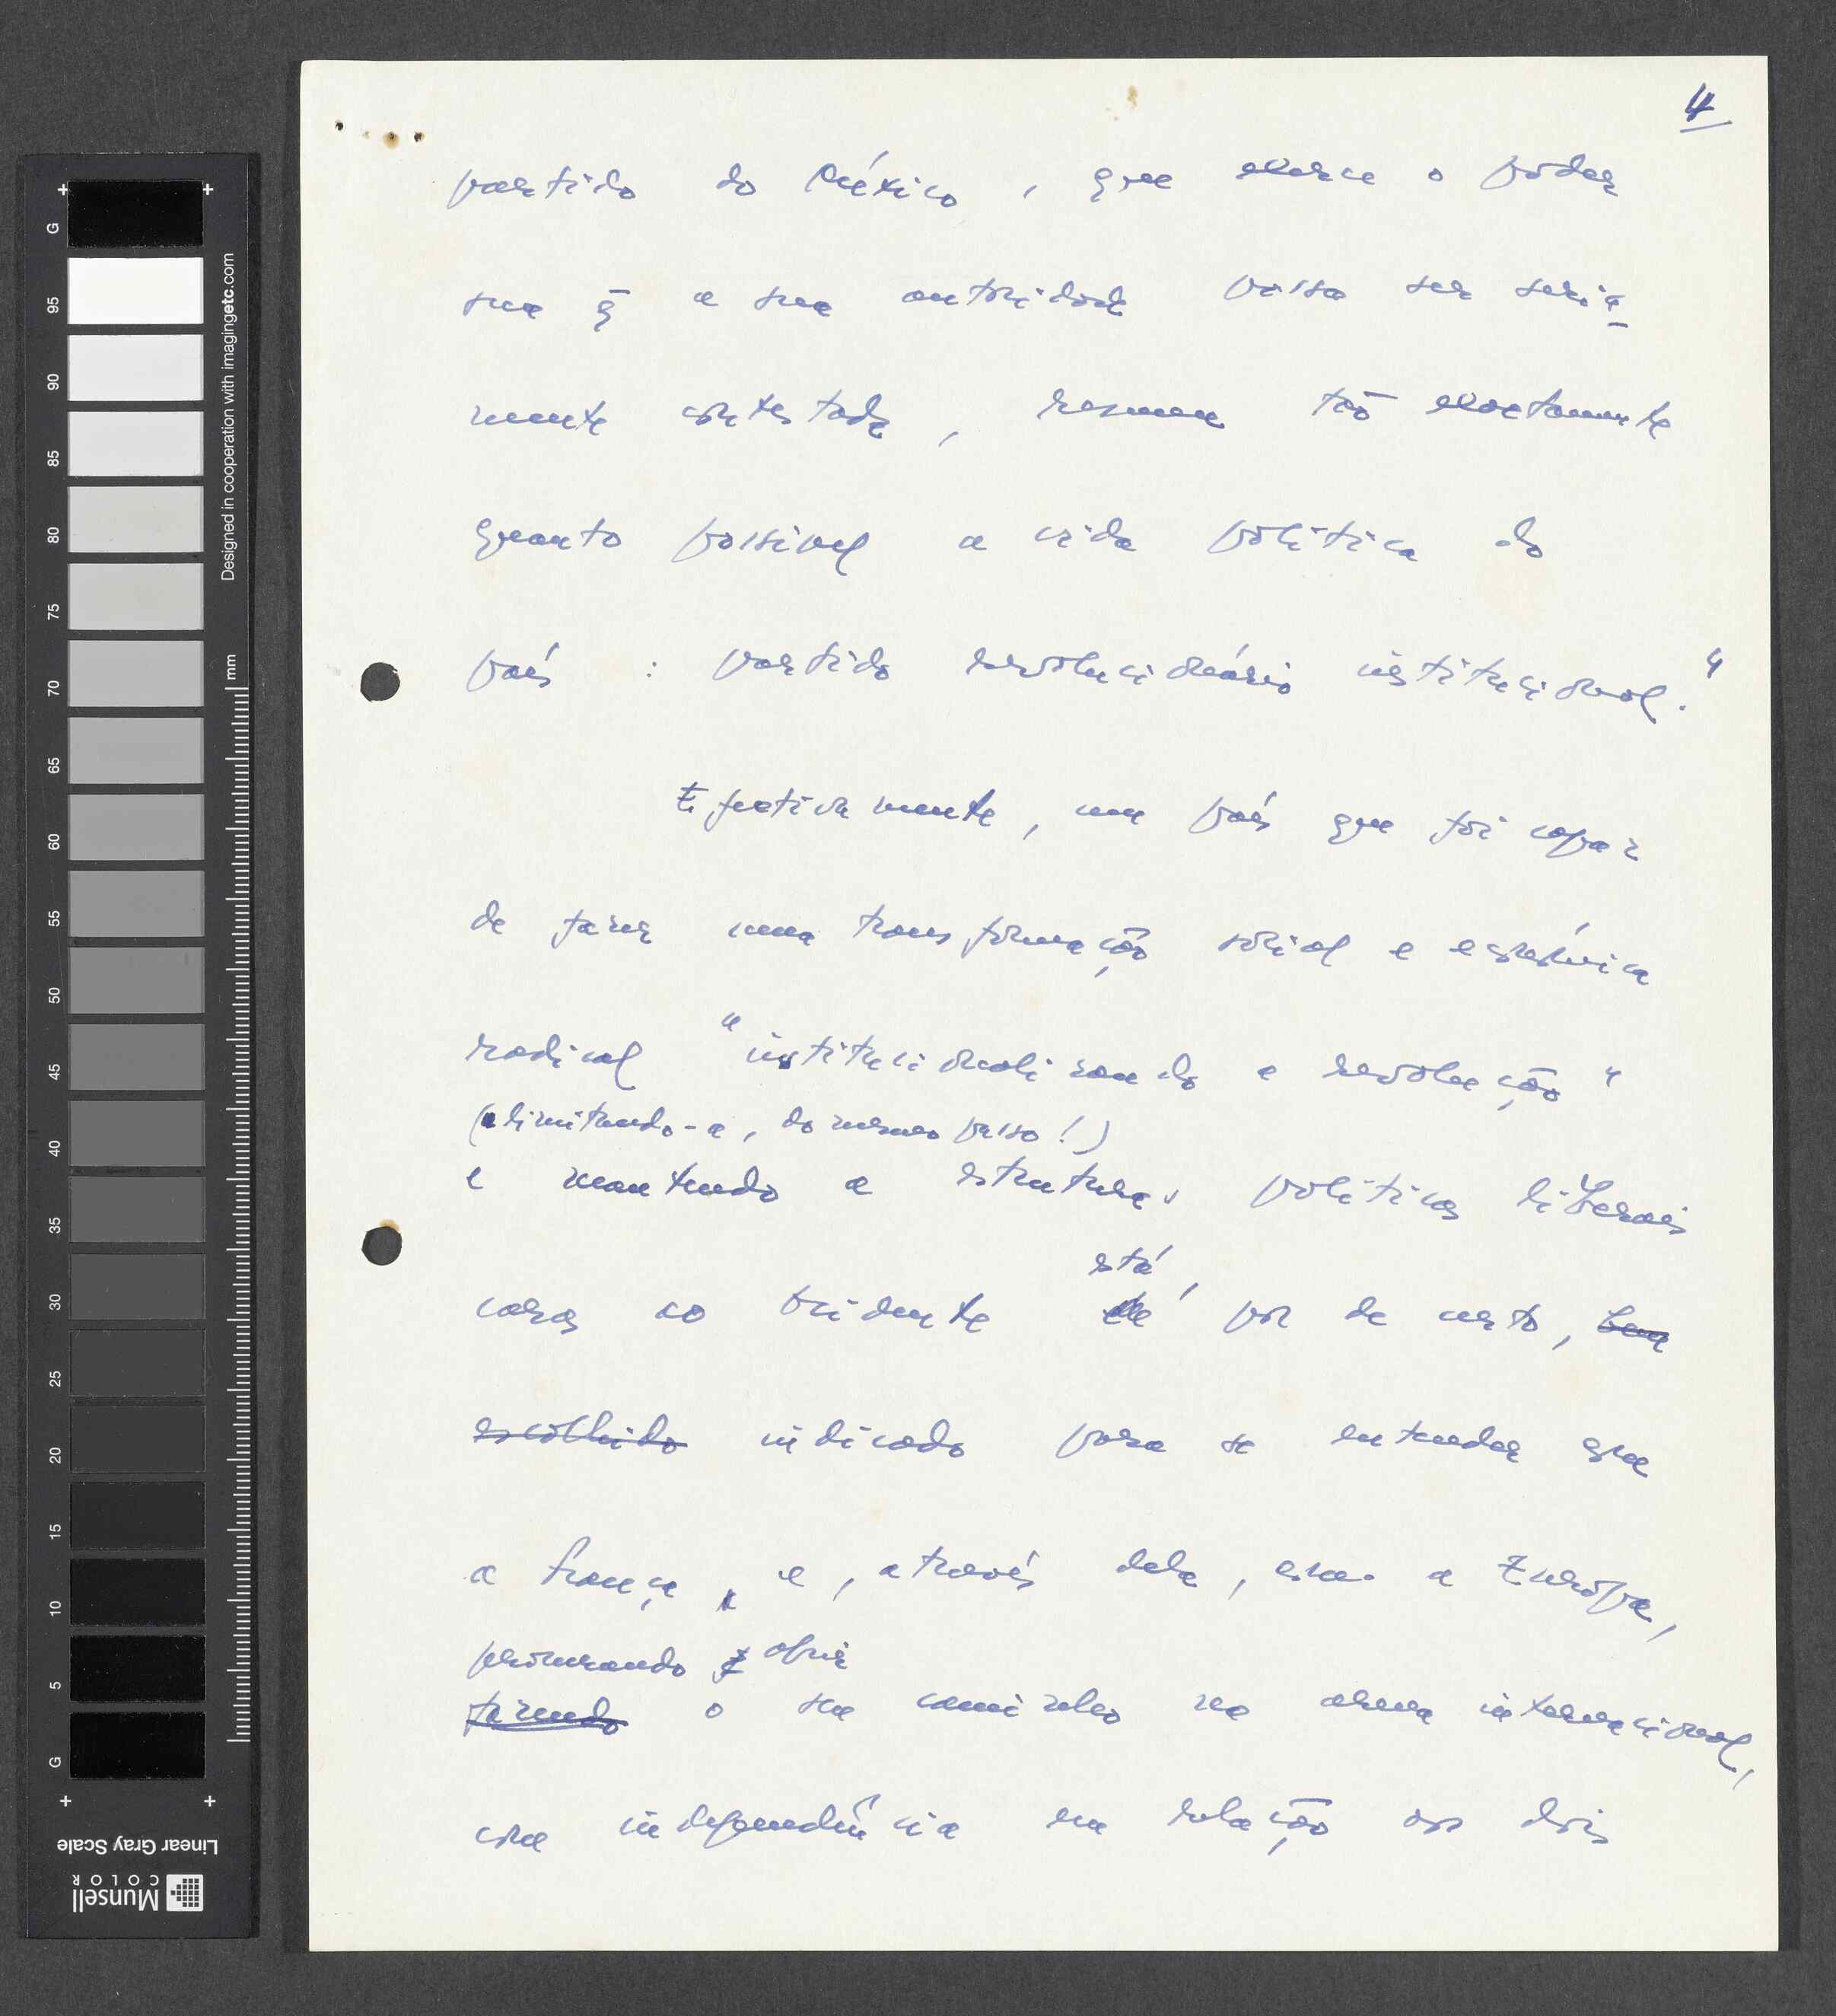 4
partido do México, que exerce o poder
sem q̄ a sua autoridade possa ser seria
mente contestada, resume tão exactamente
quanto possivel a vida política do
país : partido revolucionário institucional."
Efectivamente, um país que foi capaz
de fazer uma transformação social e económica
radical "institucionalizando a revolução"
(e limitando-a, do mesmo passo!)
e mantendo as estruturas políticas liberais
caras ao Ocidente
está,
por de certo, bem
escolhido indicado para se entender que
a França, e, através dela, a Europa,
procurando abrir
fazendo o seu caminho na arena internacional,
com independência em relação aos dois
G 95 90 85 80 75 70 65 60 55 50 45 40 35 30 25 20 15 10 5 G
Designed in cooperation with imagingetc.com
mm
Linear Gray Scale
Munsell
COLOR